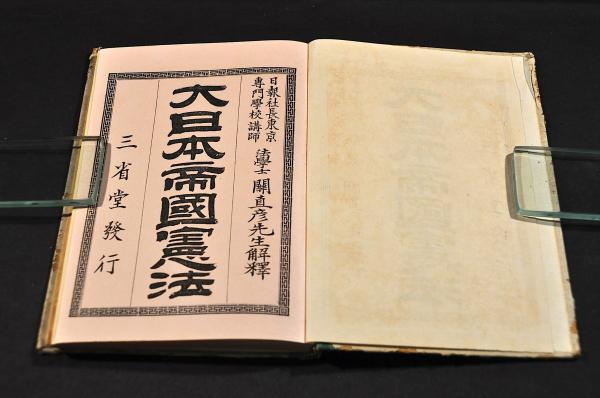 日報社長東京
專門學校講師
法學士 關直彦先生解釋
大日本帝國憲法
三省堂發行